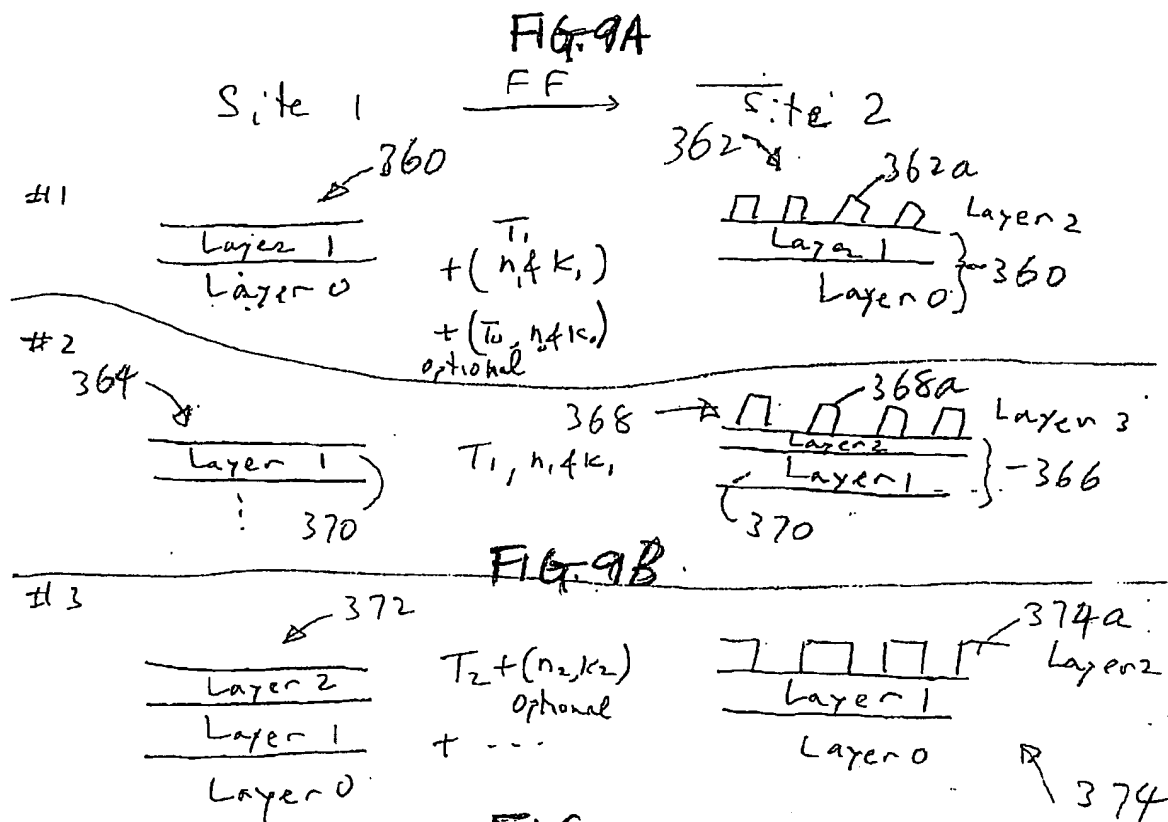 FIG. 9A
Site 1 FF Site 2
#1
360
362
362a
Layer 1
Layer 0
T1
+(n1 & k1)
+(T0, n0 & k0)
optional
Layer 2
Layer 1
360
Layer 0
#2
364
Layer 1
370
T1, n1 & k1
368
368a
Layer 3
Layer 2
Layer 1
366
370
FIG. 9B
#3
372
Layer 2
Layer 1
Layer 0
T2 + (n2, k2)
optional
+ ...
374a
Layer 2
Layer 1
Layer 0
374